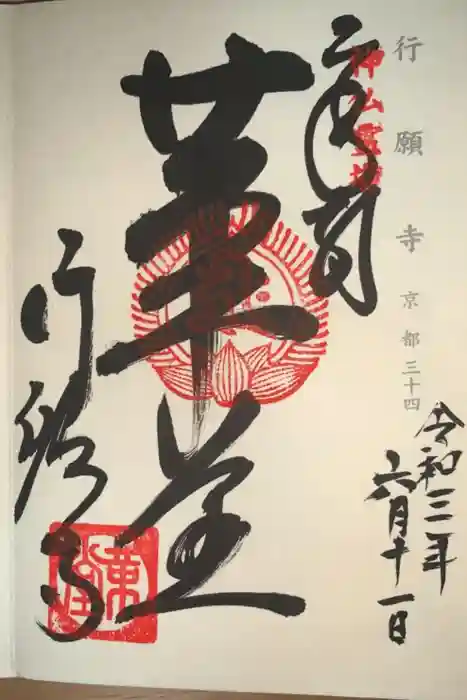 行願寺 京都三十四
神仏霊場
令和三年
六月十一日
革堂
行願寺
革堂